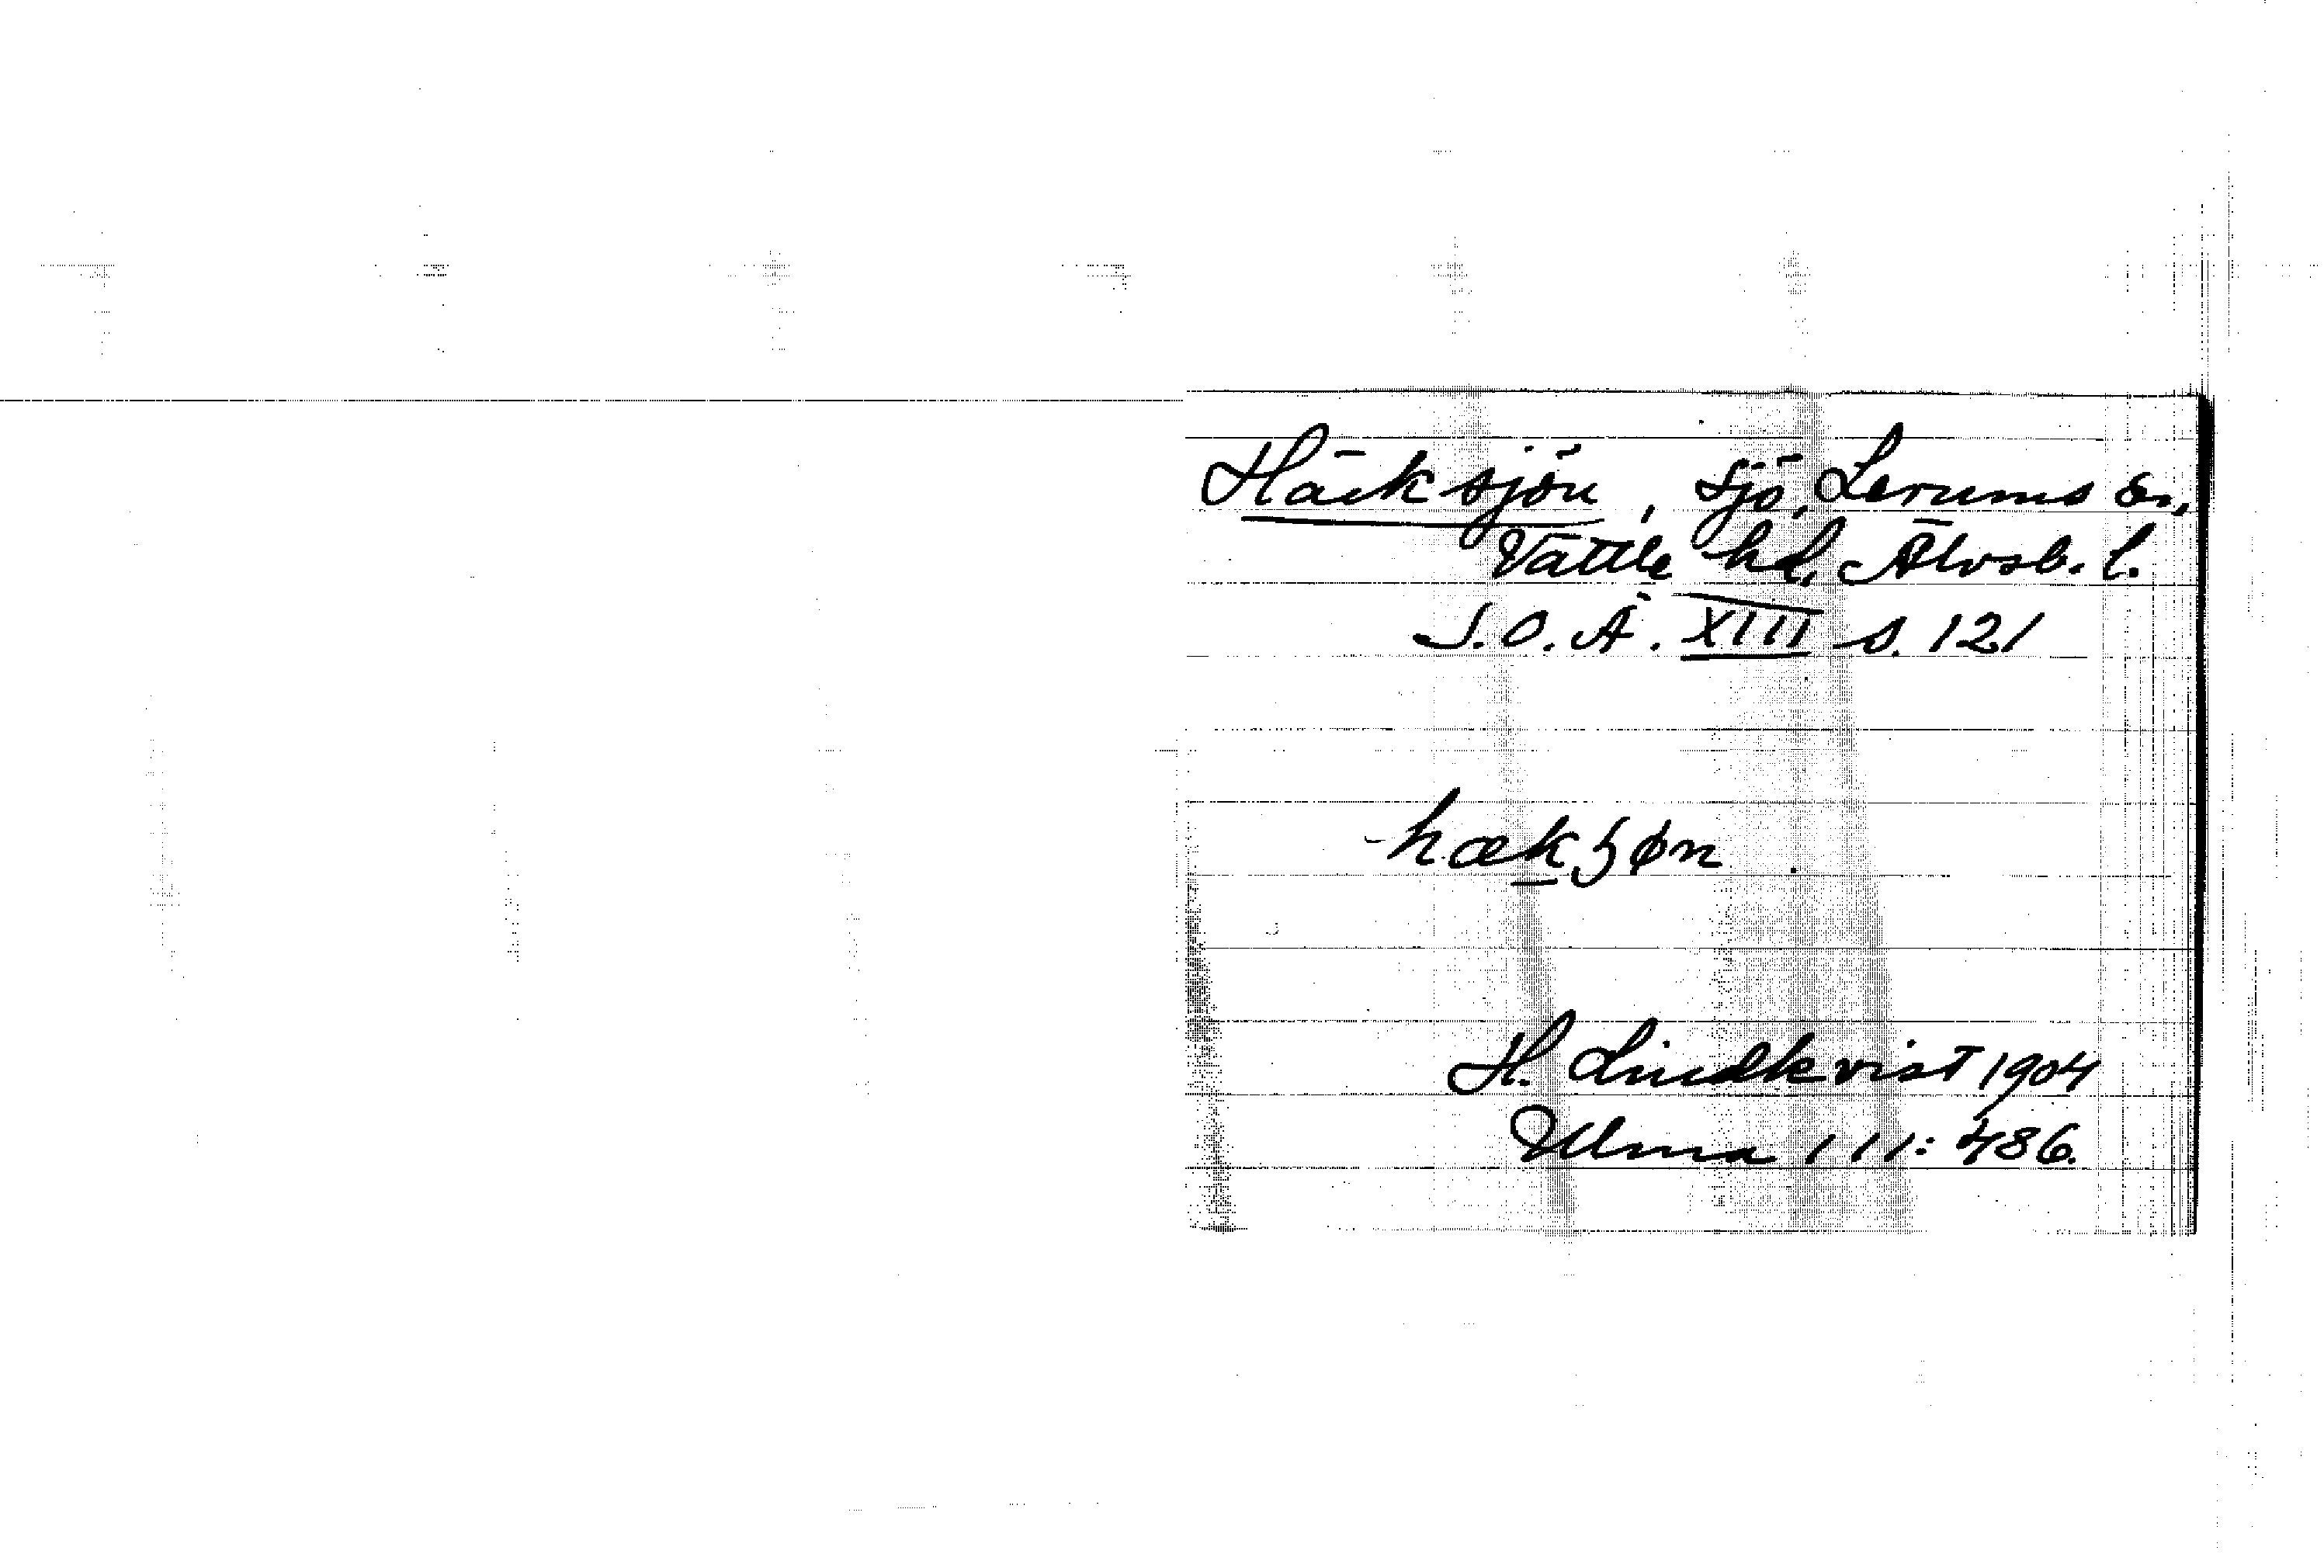 Häcksjön, sjö, Lerums sn,
Vättle hd, Älvsb. l.
S.O.Ä. XIII s. 121
hækʂøn
H. Lindkvist 1904
Ulma 111:486.